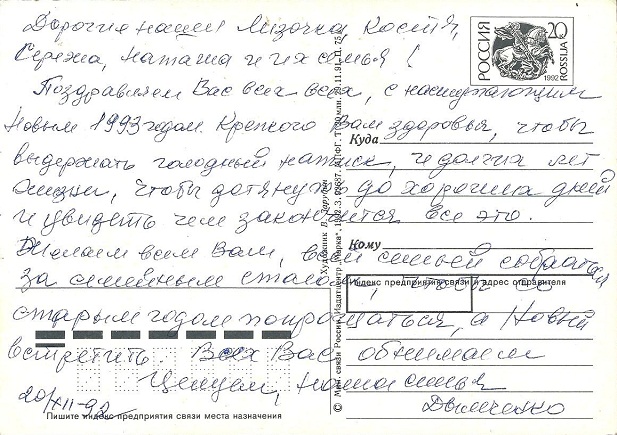 Дорогие наши Лизочка Костя,
Сережа, Наташа и их семья!
Поздравляем Вас всех всех, с наступающим
Новым 1993 годом. Крепкого Вам здоровья, чтобы
выдержать голодный натиск, и долгих лет
жизни, чтобы дотянуть до хороших дней
и увидеть чем закончится все это.
Желаем всем Вам, всей семьей собраться
за семейным столом, чтобы со
старым годом попрощаться, а Новый
встретить. Всех Вас обнимаем
Целуем, наша семья
20/XII-92
РОССИЯ
20
1992
ROSSIJA
Куда
Кому
Индекс предприятия связи и адрес отправителя
Пишите индекс предприятия связи места назначения
© Мин. связи России. Издатцентр "Марка". 1992.
Художник